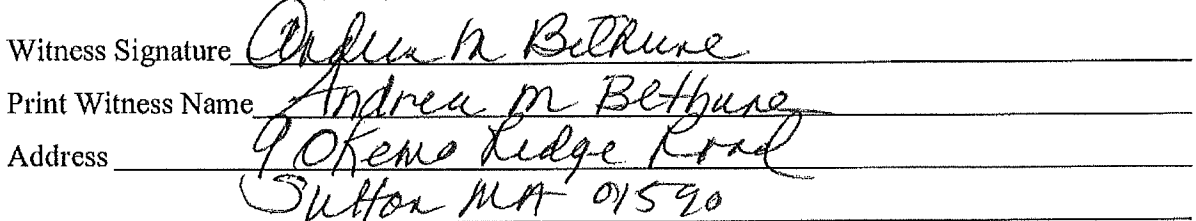 Witness Signature Andrea M Bethune
Print Witness Name Andrea M Bethune
Address 9 Okemo Ridge Road
Sutton MA 01590